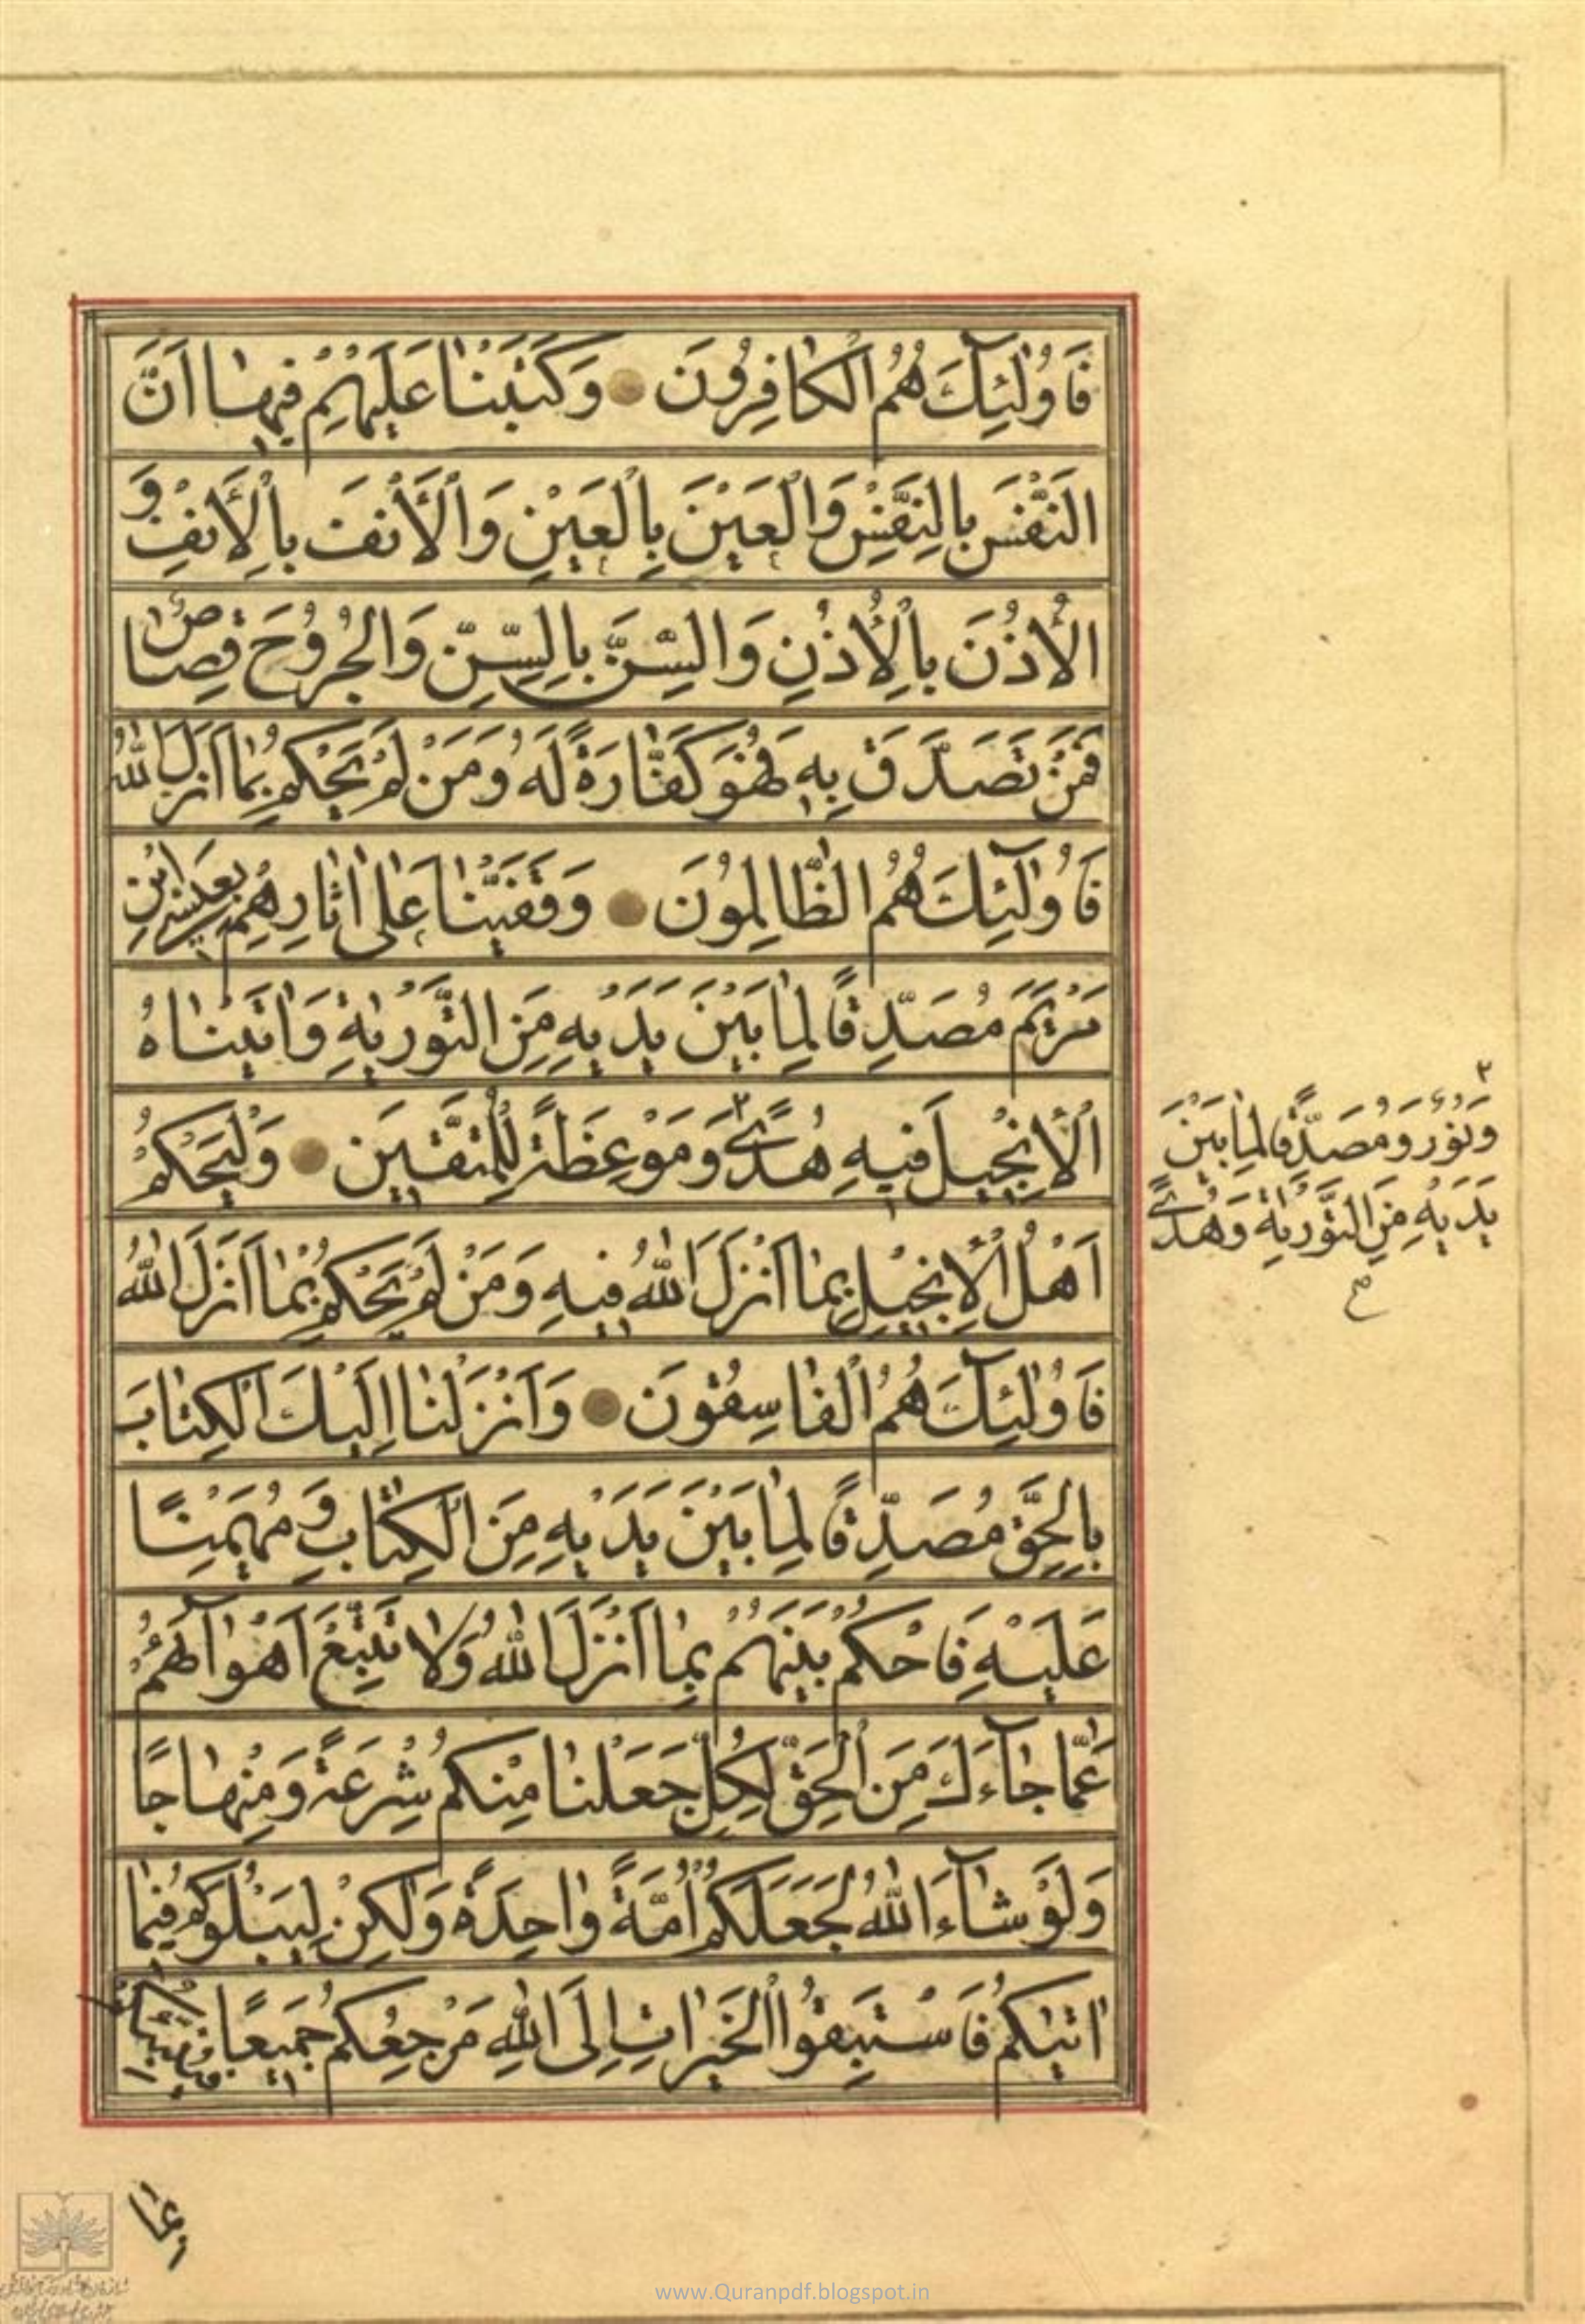 فَاُولٰئِكَ هُمُ الْكَافِرُونَ وَكَتَبْنٰا عَلَيْهِمْ فِيهٰا اَنَّ
النَّفْسَ بِالنَّفْسِ وَالْعَيْنَ بِالْعَيْنِ وَالْأَنْفَ بِالْأَنْفِ وَ
الْأُذُنَ بِالْأُذُنِ وَالسِّنَّ بِالسِّنِّ وَالْجُرُوحَ قِصٰاصٌ
فَمَنْ تَصَدَّقَ بِهِ فَهُوَ كَفّٰارَةٌ لَهُ وَمَنْ لَمْ يَحْكُمْ بِمٰا اَنْزَلَ اللّٰهُ
فَاُولٰئِكَ هُمُ الظّٰالِمُونَ وَقَفَّيْنٰا عَلٰى اٰثٰارِهِمْ بِعِيسَى ابْنِ
مَرْيَمَ مُصَدِّقًا لِمٰا بَيْنَ يَدَيْهِ مِنَ التَّوْرٰيةِ وَاٰتَيْنٰاهُ
الْإِنْجِيلَ فِيهِ هُدًى ٣ وَمَوْعِظَةً لِلْمُتَّقِينَ وَلْيَحْكُمْ
اَهْلُ الْإِنْجِيلِ بِمٰا اَنْزَلَ اللّٰهُ فِيهِ وَمَنْ لَمْ يَحْكُمْ بِمٰا اَنْزَلَ اللّٰهُ
فَاُولٰئِكَ هُمُ الْفٰاسِقُونَ وَاَنْزَلْنٰا اِلَيْكَ الْكِتٰابَ
بِالْحَقِّ مُصَدِّقًا لِمٰا بَيْنَ يَدَيْهِ مِنَ الْكِتٰابِ وَمُهَيْمِنًا
عَلَيْهِ فَاحْكُمْ بَيْنَهُمْ بِمٰا اَنْزَلَ اللّٰهُ وَلٰا تَتَّبِعْ اَهْوٰآءَهُمْ
عَمّٰا جٰآءَكَ مِنَ الْحَقِّ لِكُلٍّ جَعَلْنٰا مِنْكُمْ شِرْعَةً وَمِنْهٰاجًا
وَلَوْ شٰآءَ اللّٰهُ لَجَعَلَكُمْ اُمَّةً وٰاحِدَةً وَلٰكِنْ لِيَبْلُوَكُمْ فِيمٰا
اٰتٰيكُمْ فَاسْتَبِقُوا الْخَيْرٰاتِ اِلَى اللّٰهِ مَرْجِعُكُمْ جَمِيعًا فَيُنَبِّئُكُمْ
٣
وَنُورٌ وَمُصَدِّقًا لِمٰا بَيْنَ
يَدَيْهِ مِنَ التَّوْرٰيةِ وَهُدًى
بِمٰا
www.Quranpdf.blogspot.in